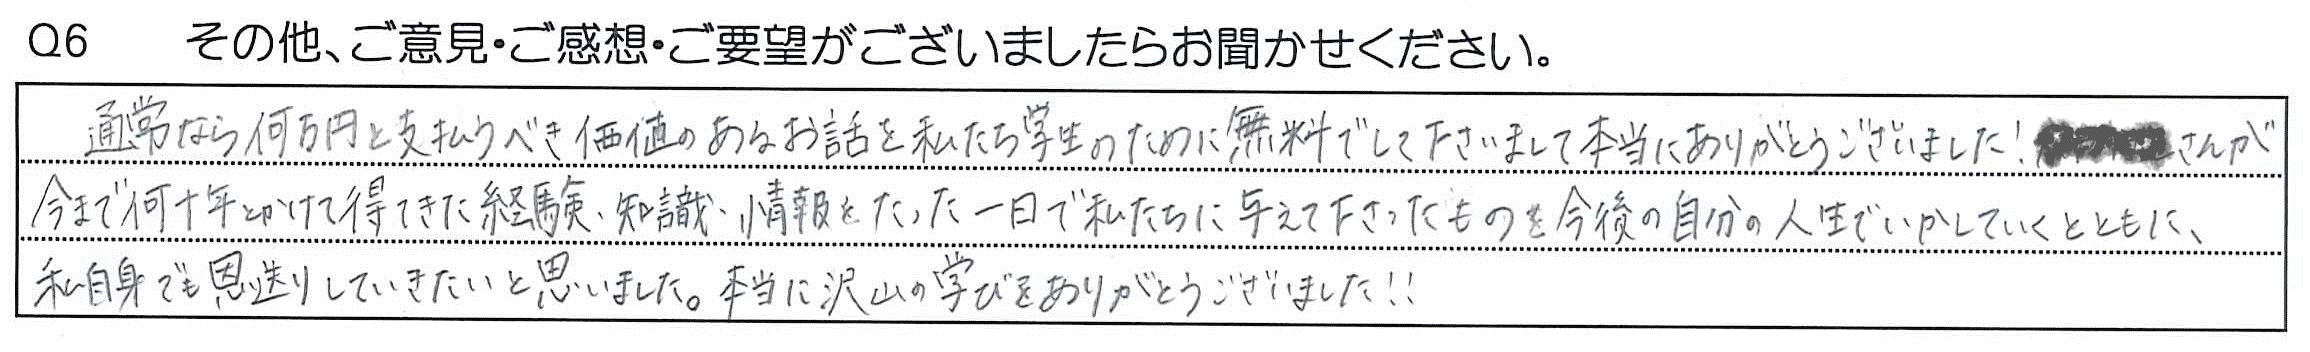 Q6 その他、ご意見・ご感想・ご要望がございましたらお聞かせください。
通常なら何万円と支払うべき価値のあるお話を私たち学生のために無料でして下さいまして本当にありがとうございました!さんが
今まで何十年とかけて得てきた経験、知識、情報をたった一日で私たちに与えて下さったものを今後の自分の人生でいかしていくとともに、
私自身でも恩送りしていきたいと思いました。本当に沢山の学びをありがとうございました!!